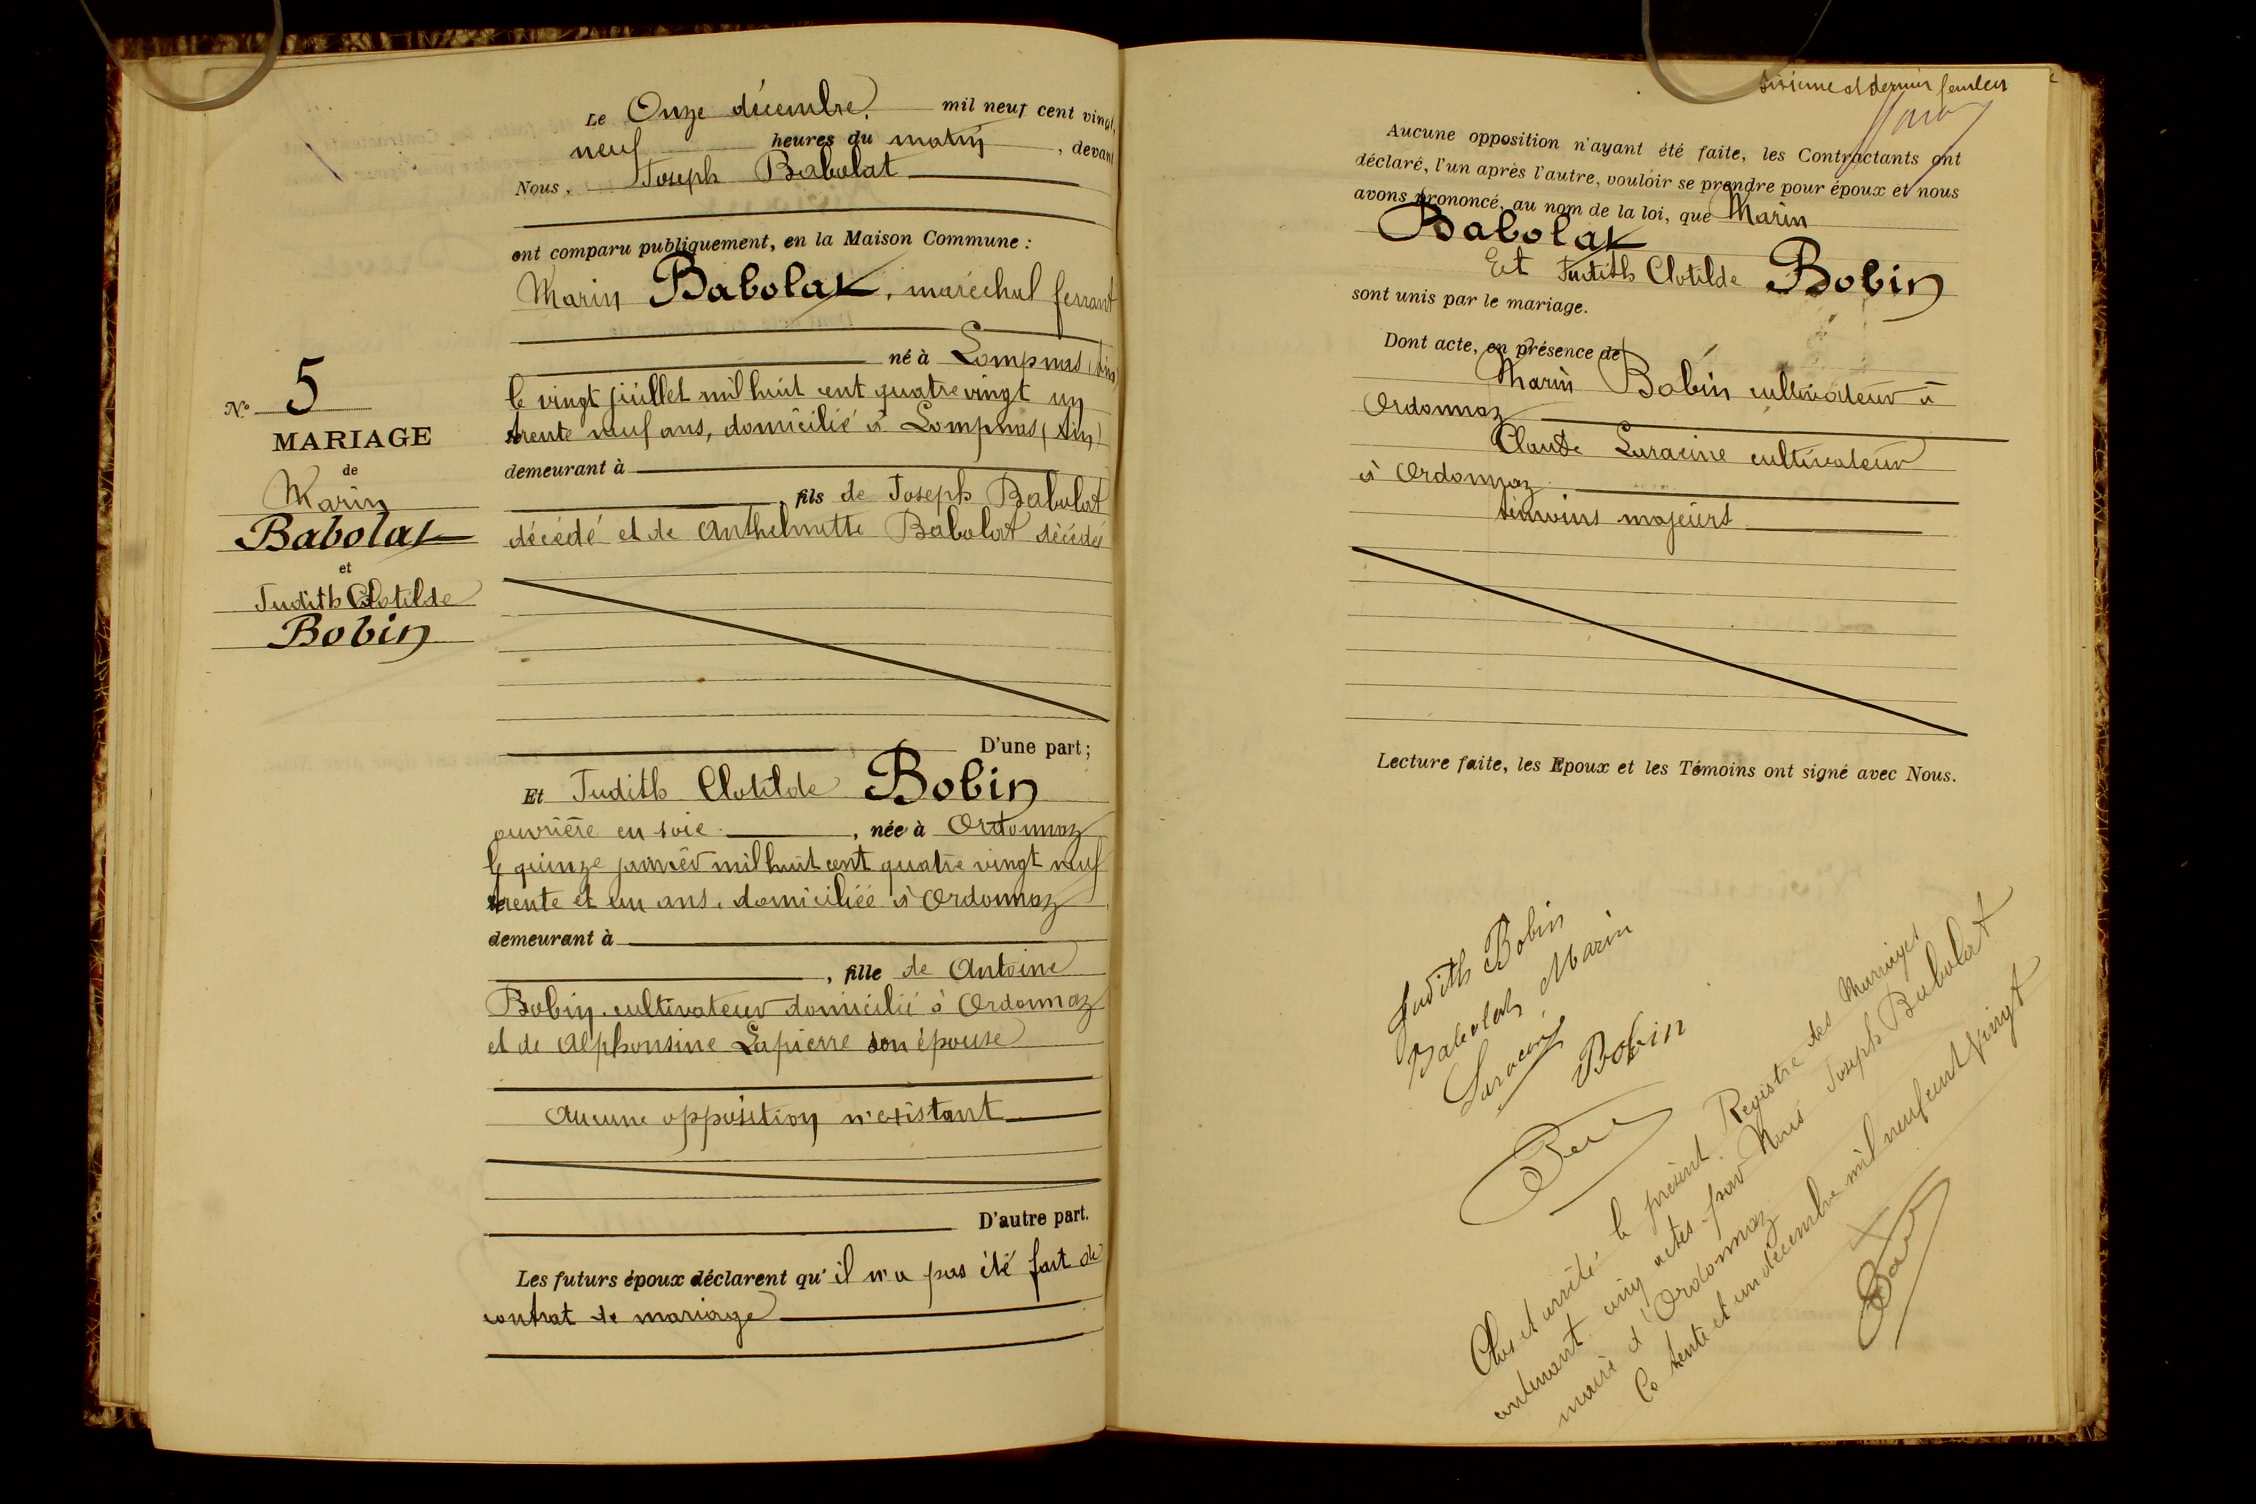 N.º 5
MARIAGE
de
Marin
Babolat
et
Judith Clotilde
Bobin
Le Onze décembre, mil neuf cent vingt,
neuf heures du matin, devant
Nous, Joseph Babolat
ont comparu publiquement, en la Maison Commune :
Marin Babolat, maréchal ferrant
né à Lompnas (Ain)
le vingt juillet mil huit cent quatre vingt un
trente neuf ans, domicilié à Lompnas (Ain)
demeurant à
, fils de Joseph Babolat
décédé et de Anthelmette Babolat décédée
D'une part ;
Et Judith Clotilde Bobin
ouvrière en soie, née à Ordonnaz
le quinze janvier mil huit cent quatre vingt neuf
trente et un ans, domiciliée à Ordonnaz
demeurant à
, fille de Antoine
Bobin, cultivateur domicilié à Ordonnaz
et de Alphonsine Lapierre son épouse
Aucune opposition n'existant
D'autre part.
Les futurs époux déclarent qu'il n'a pas été fait de
contrat de mariage
sixième et dernier feuillet
Aucune opposition n'ayant été faite, les Contractants ont
déclaré, l'un après l'autre, vouloir se prendre pour époux et nous
avons prononcé, au nom de la loi, que Marin
Babolat
Et Judith Clotilde Bobin
sont unis par le mariage.
Dont acte, en présence de
Marin Bobin cultivateur à
Ordonnaz
Claude Laracine cultivateur
à Ordonnaz
témoins majeurs
Lecture faite, les Epoux et les Témoins ont signé avec Nous.
Judith Bobin
Babolat Marin
Laracine
Bobin
Clos et arrêté le présent Registre des Mariages
contenant cinq actes par Nous Joseph Babolat
maire d'Ordonnaz
Ce trente et un décembre mil neuf cent vingt